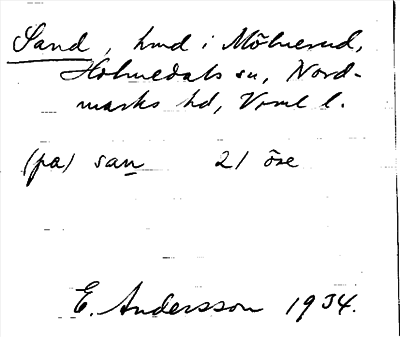 Sand, hmd i Mölnerud,
Holmedals sn, Nord-
marks hd, Vrml l.
(pa) san 21 öre
E. Andersson 1934.